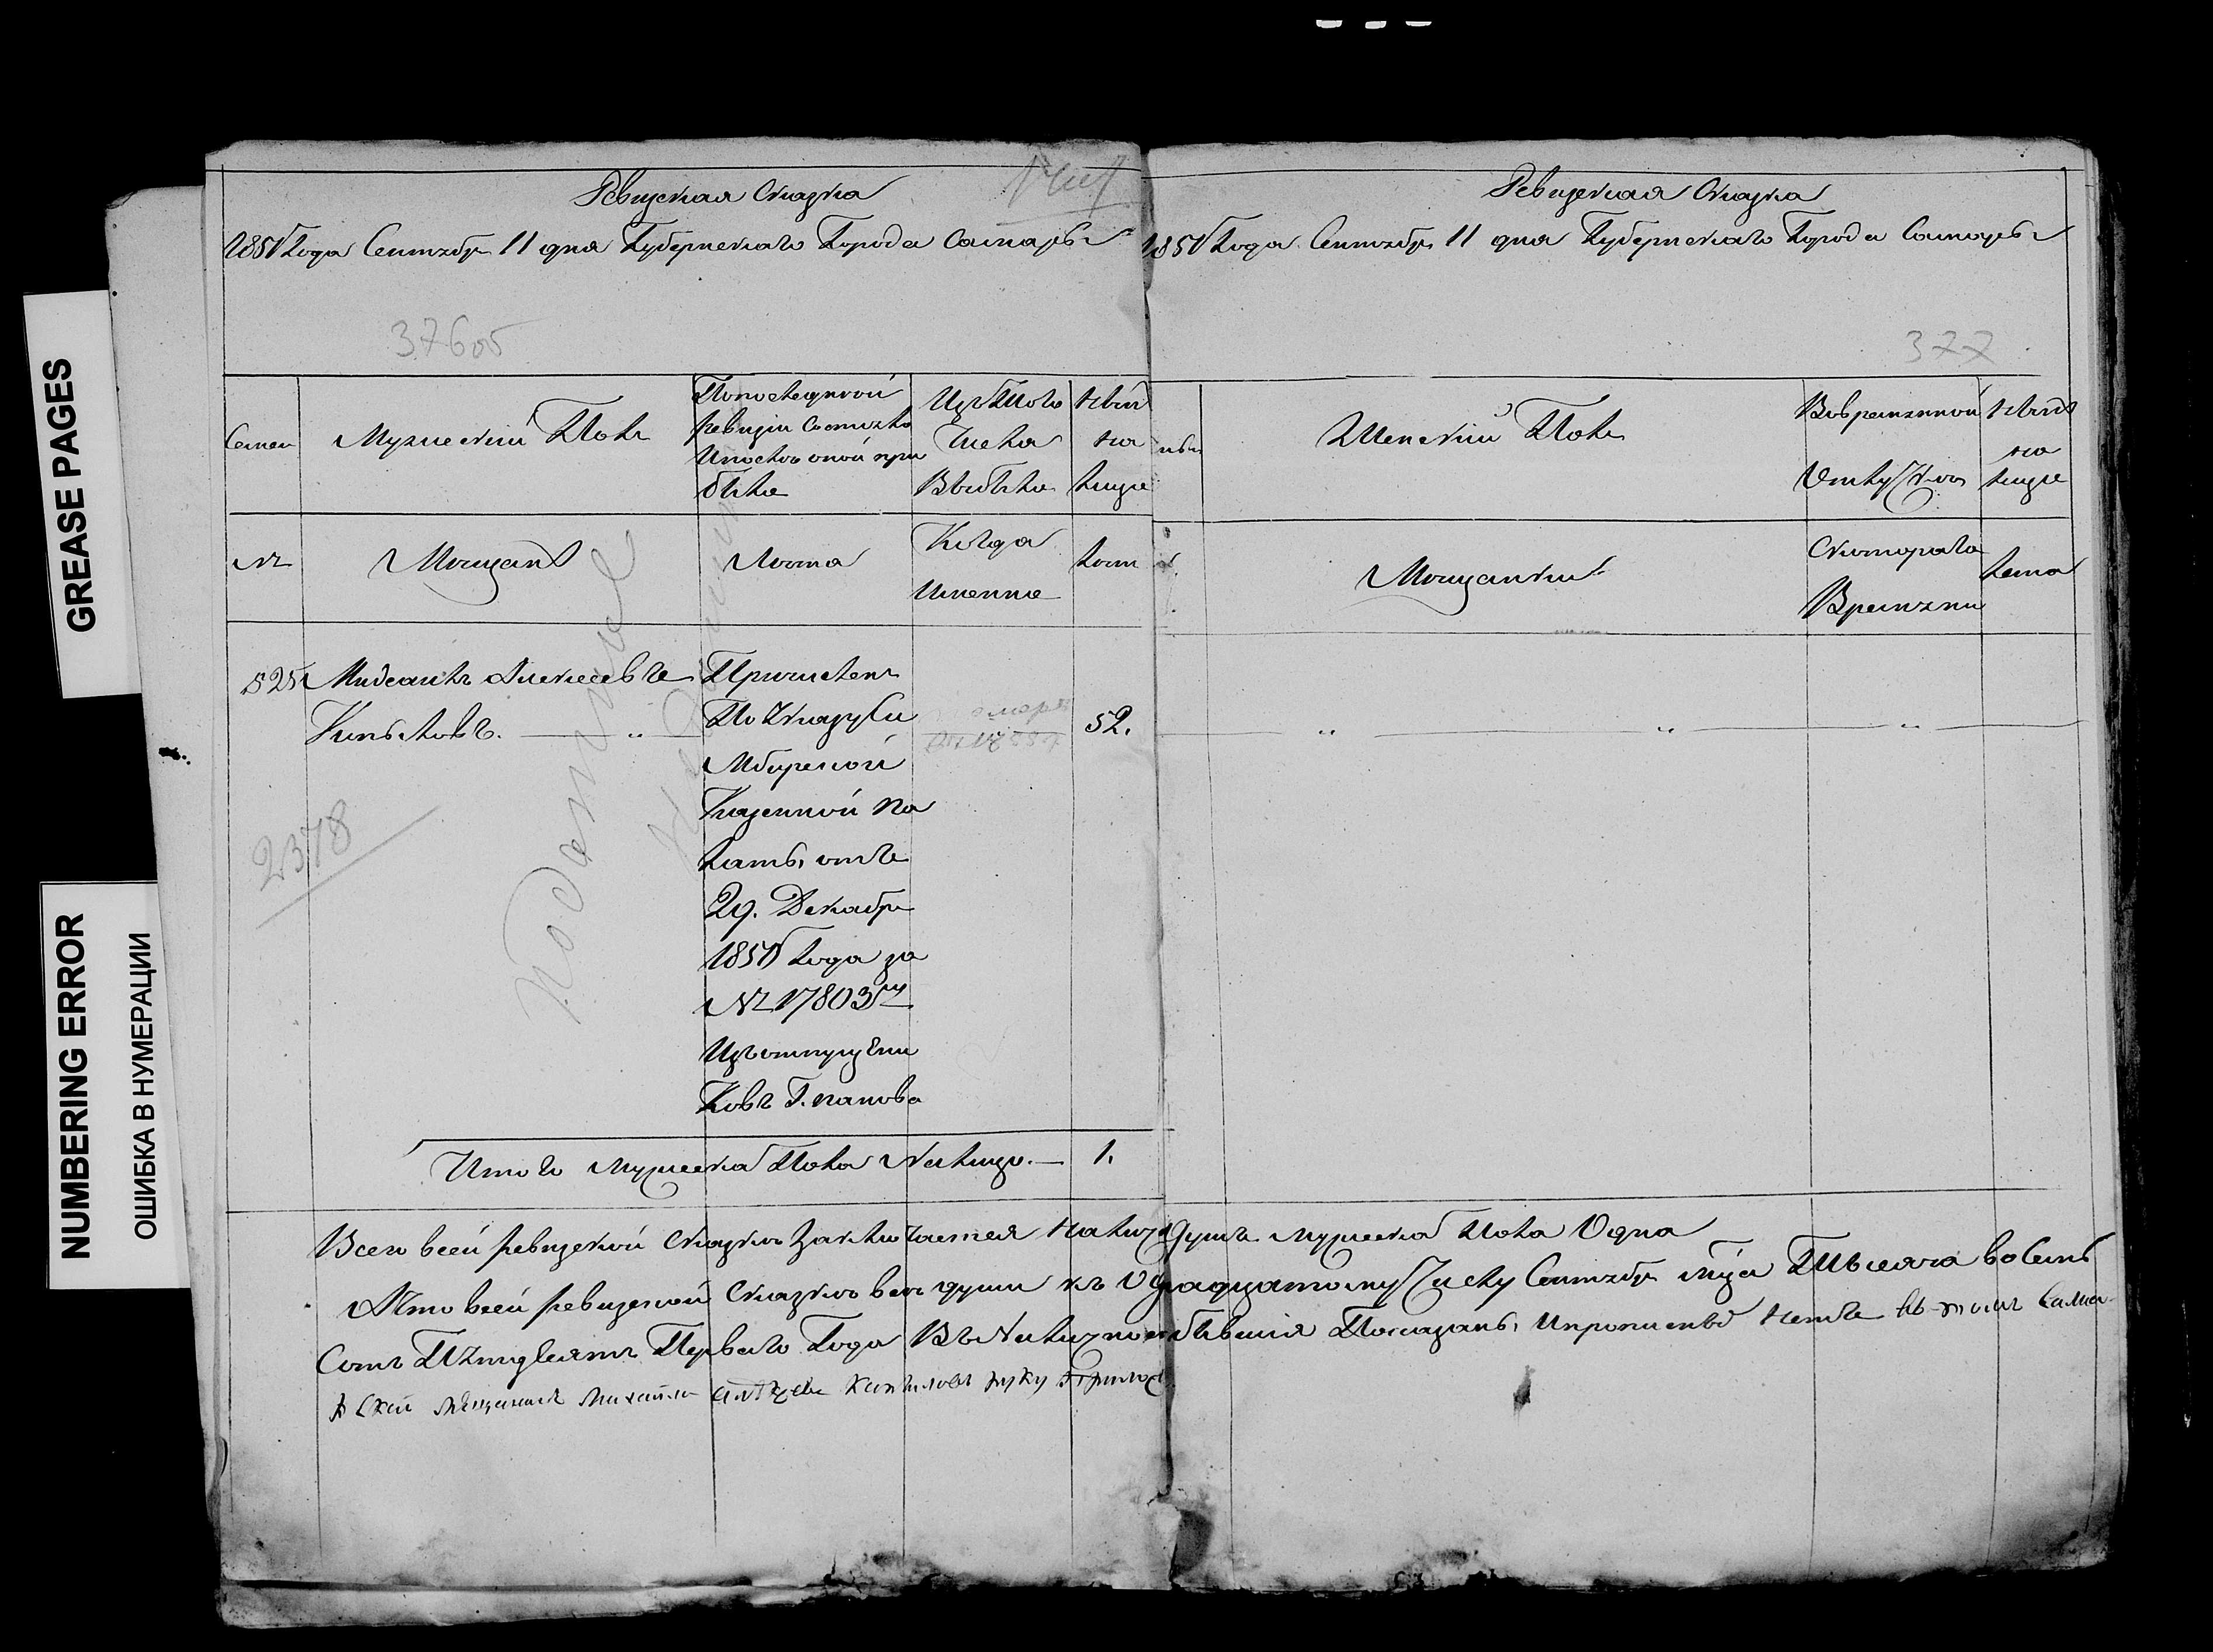 GREASE PAGES
NUMBERING ERROR
ОШИБКА В НУМЕРАЦИИ
Ревизская Сказка
1851 Года Сентября 11 дня Губернского Города Самары
376об
Семьи
Мужеский Полъ
По последней
ревизіи Состояло
и после оной при
было
Изъ того
Числа
Выбыло
Ныне
на
лицо
№
Мещане
Лета
Когда
Именно
Лета
525
Михайлъ Алексеевъ
Копыловъ. — „ —
Причисленъ
По Указу Си
мбирской
Казенной Па
латы, отъ
29. Декабря
1850 Года за
№ 17803м
Изъ отпущени
ковъ Г. Панова
52.
2378
Податные
Итого мужеска Пола Налицо. — 1.
Ревизская Сказка
1851 Года Сентября 11 дня Губернского Города Самары
377
Женский Полъ
Во временной
Отлучке
Ныне
на
лицо
Мещанки
С которого
Времени
Лета
„ — „ — „
Всего в сей ревизской сказке заключается Налицо душъ мужеска Пола Одна
Что в сей ревизской сказке все души къ Одинадцатому Числу Сентября м-ца Тысяча восемь
Сотъ Пятьдесятъ Перваго Года Въ Налични бывшія Показаны, и прописныхъ нетъ въ томъ Сама
рской мещанинъ Михайла Алексеевъ Капыловъ руку приложи